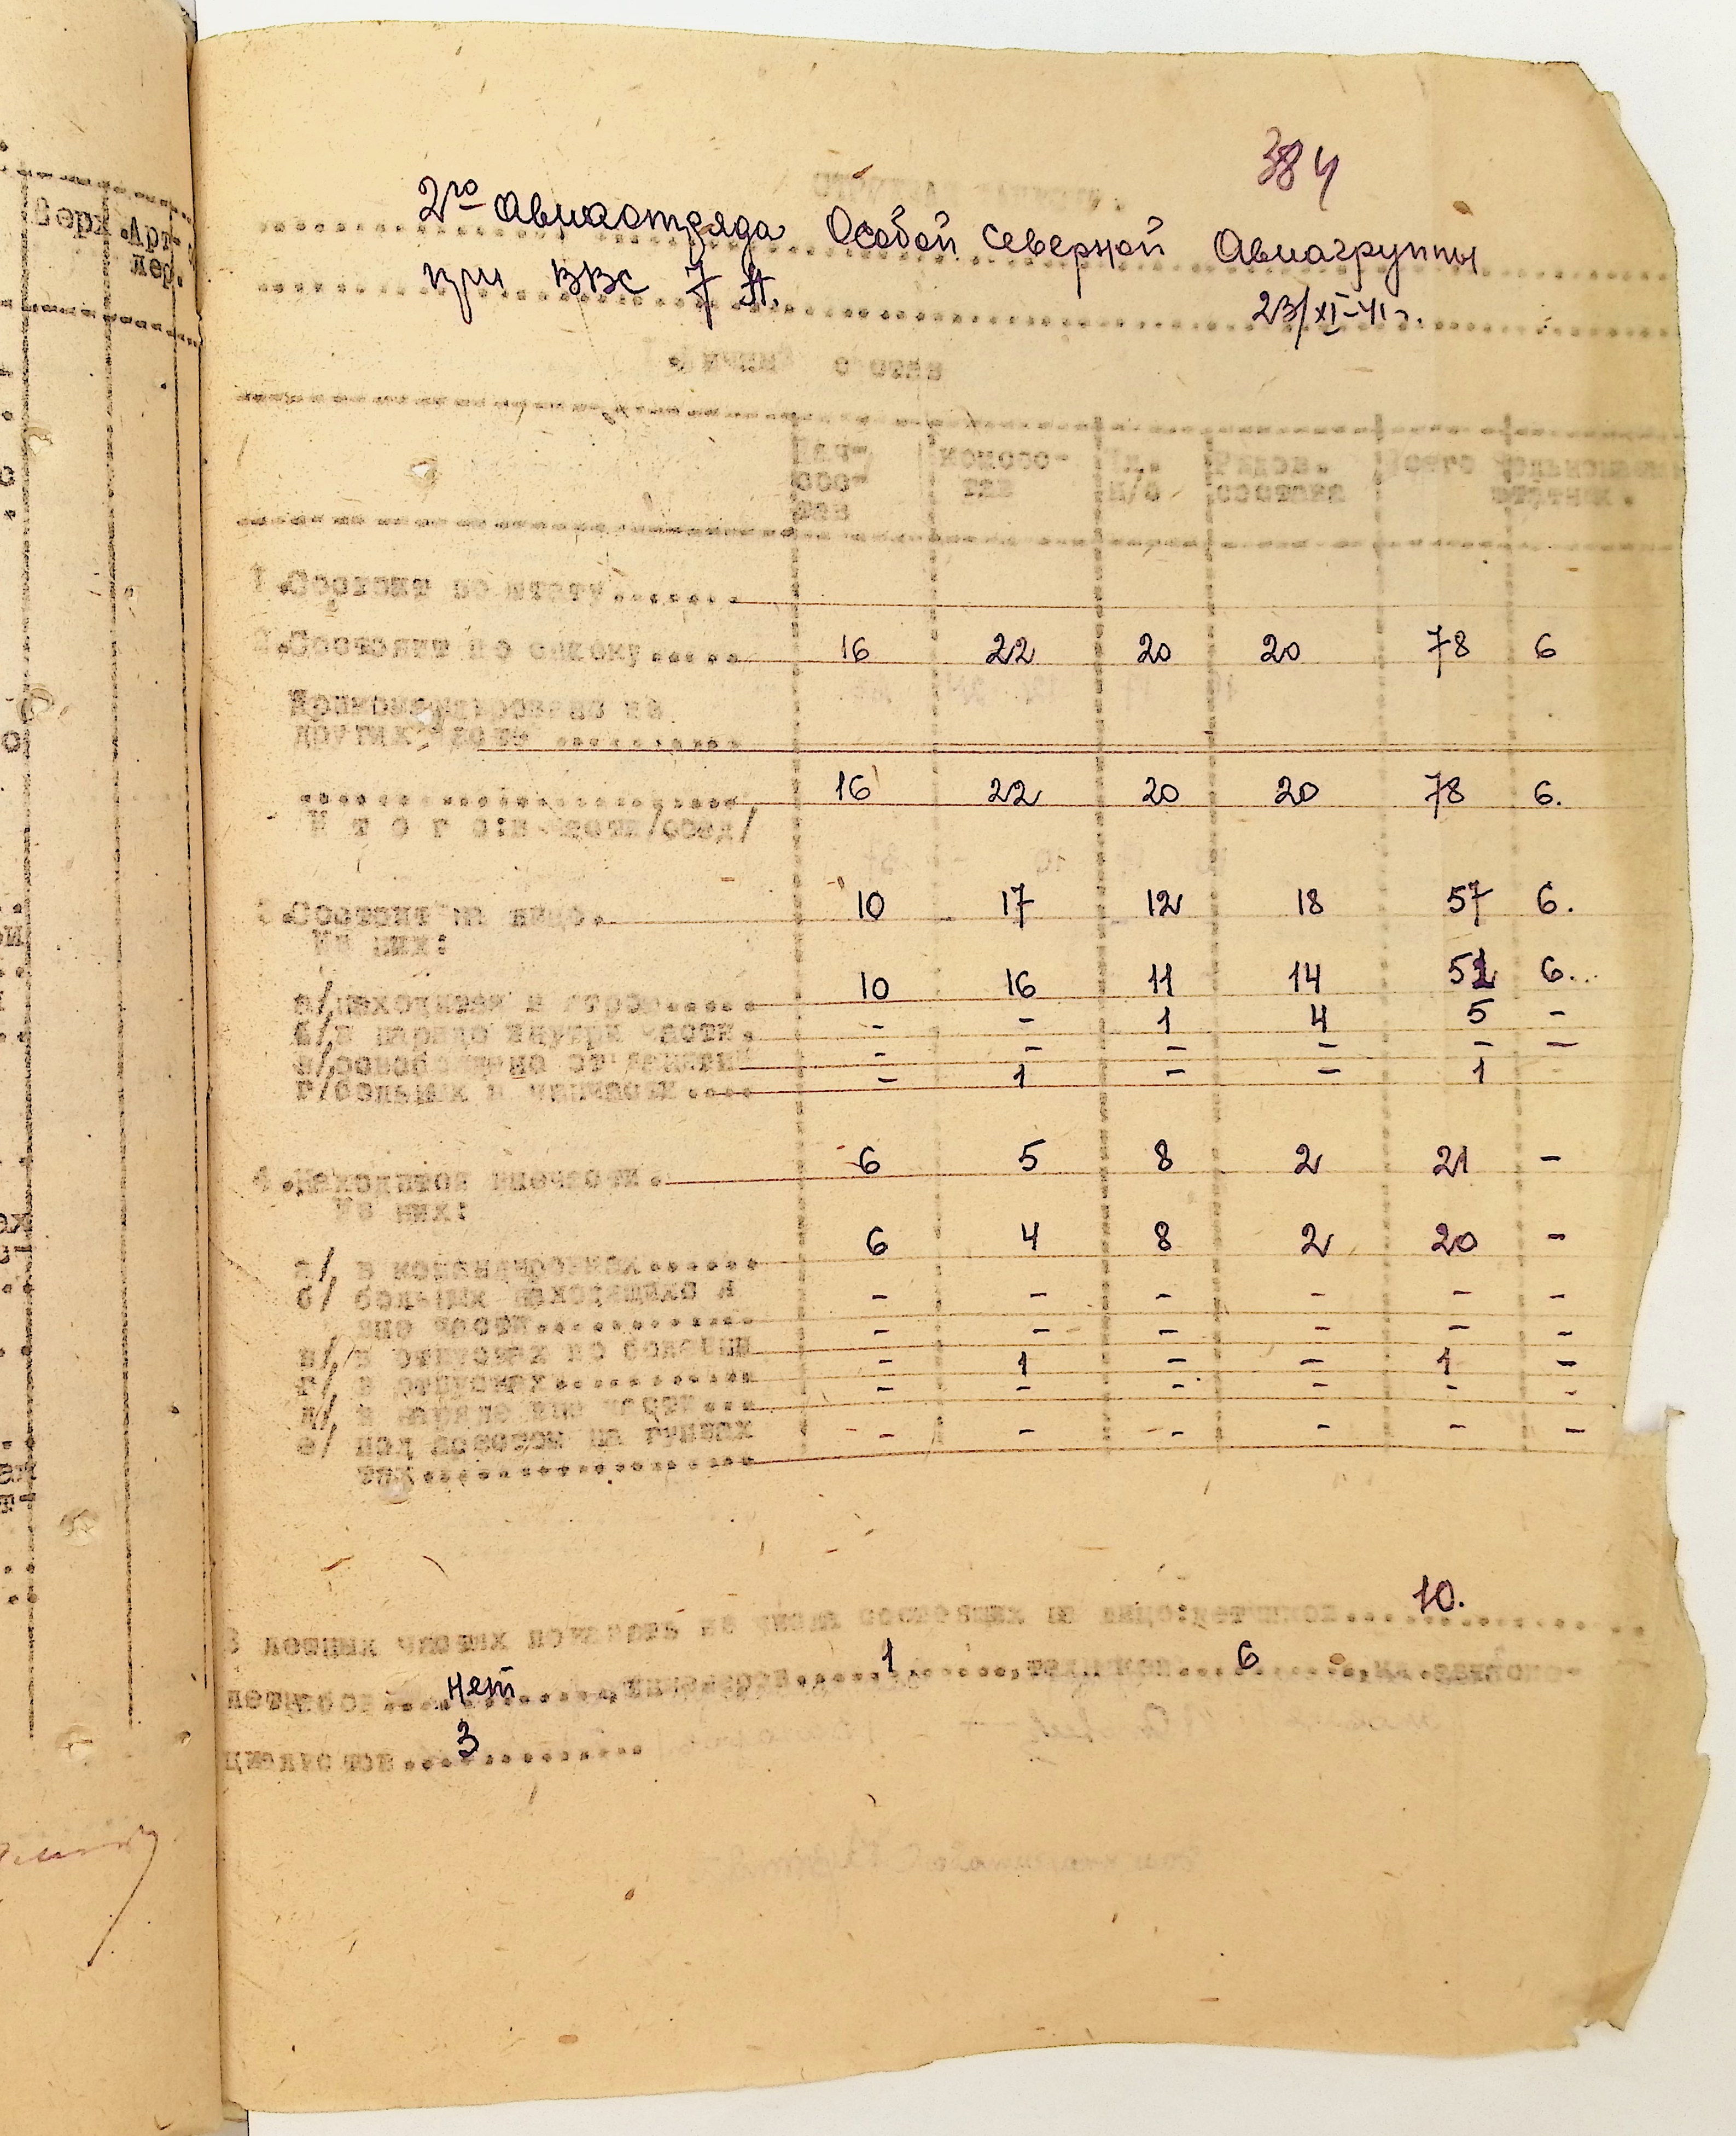 384
2го авиаотряда Особой северной Авиагруппы
при ВВС 7 А.
23/XI-41 г.
Нач- сос- тав
комсос- тав
Мл. н/с
Рядов. состава
Всего
1.Состоит по штату.......
2.Состоит по списку..... 16 22 20 20 78 6
Прикомандировано из
других част .........
16 22 20 20 78 6.
И т о г о:в части/отряд/
3.Состоит на лицо. 10 17 12 18 57 6.
Из них:
а/находится в строю..... 10 16 11 14 51 6..
б/в наряде внутри части. - - 1 4 5 -
в/освобождено от занятий - - - - - -
г/больных в санчасти.... - 1 - - 1 -
4.Находится вне части. 6 5 8 2 21 -
Из них:
а/ в командировках....... 6 4 8 2 20 -
б/ больных находящихся
вне части............. - - - - - -
в/ в отпусках по болезни - - - - - -
г/ в отпусках............ - 1 - - 1 -
д/ в наряде вне части ... - - - - - -
е/ под арестом на гуптвах
тах.................... - - - - - -
В летных частях показать из числа состоящих на лицо:летчиков... 10.
летнабов... нет ......, 1 ......,техников.... 6 ......
3